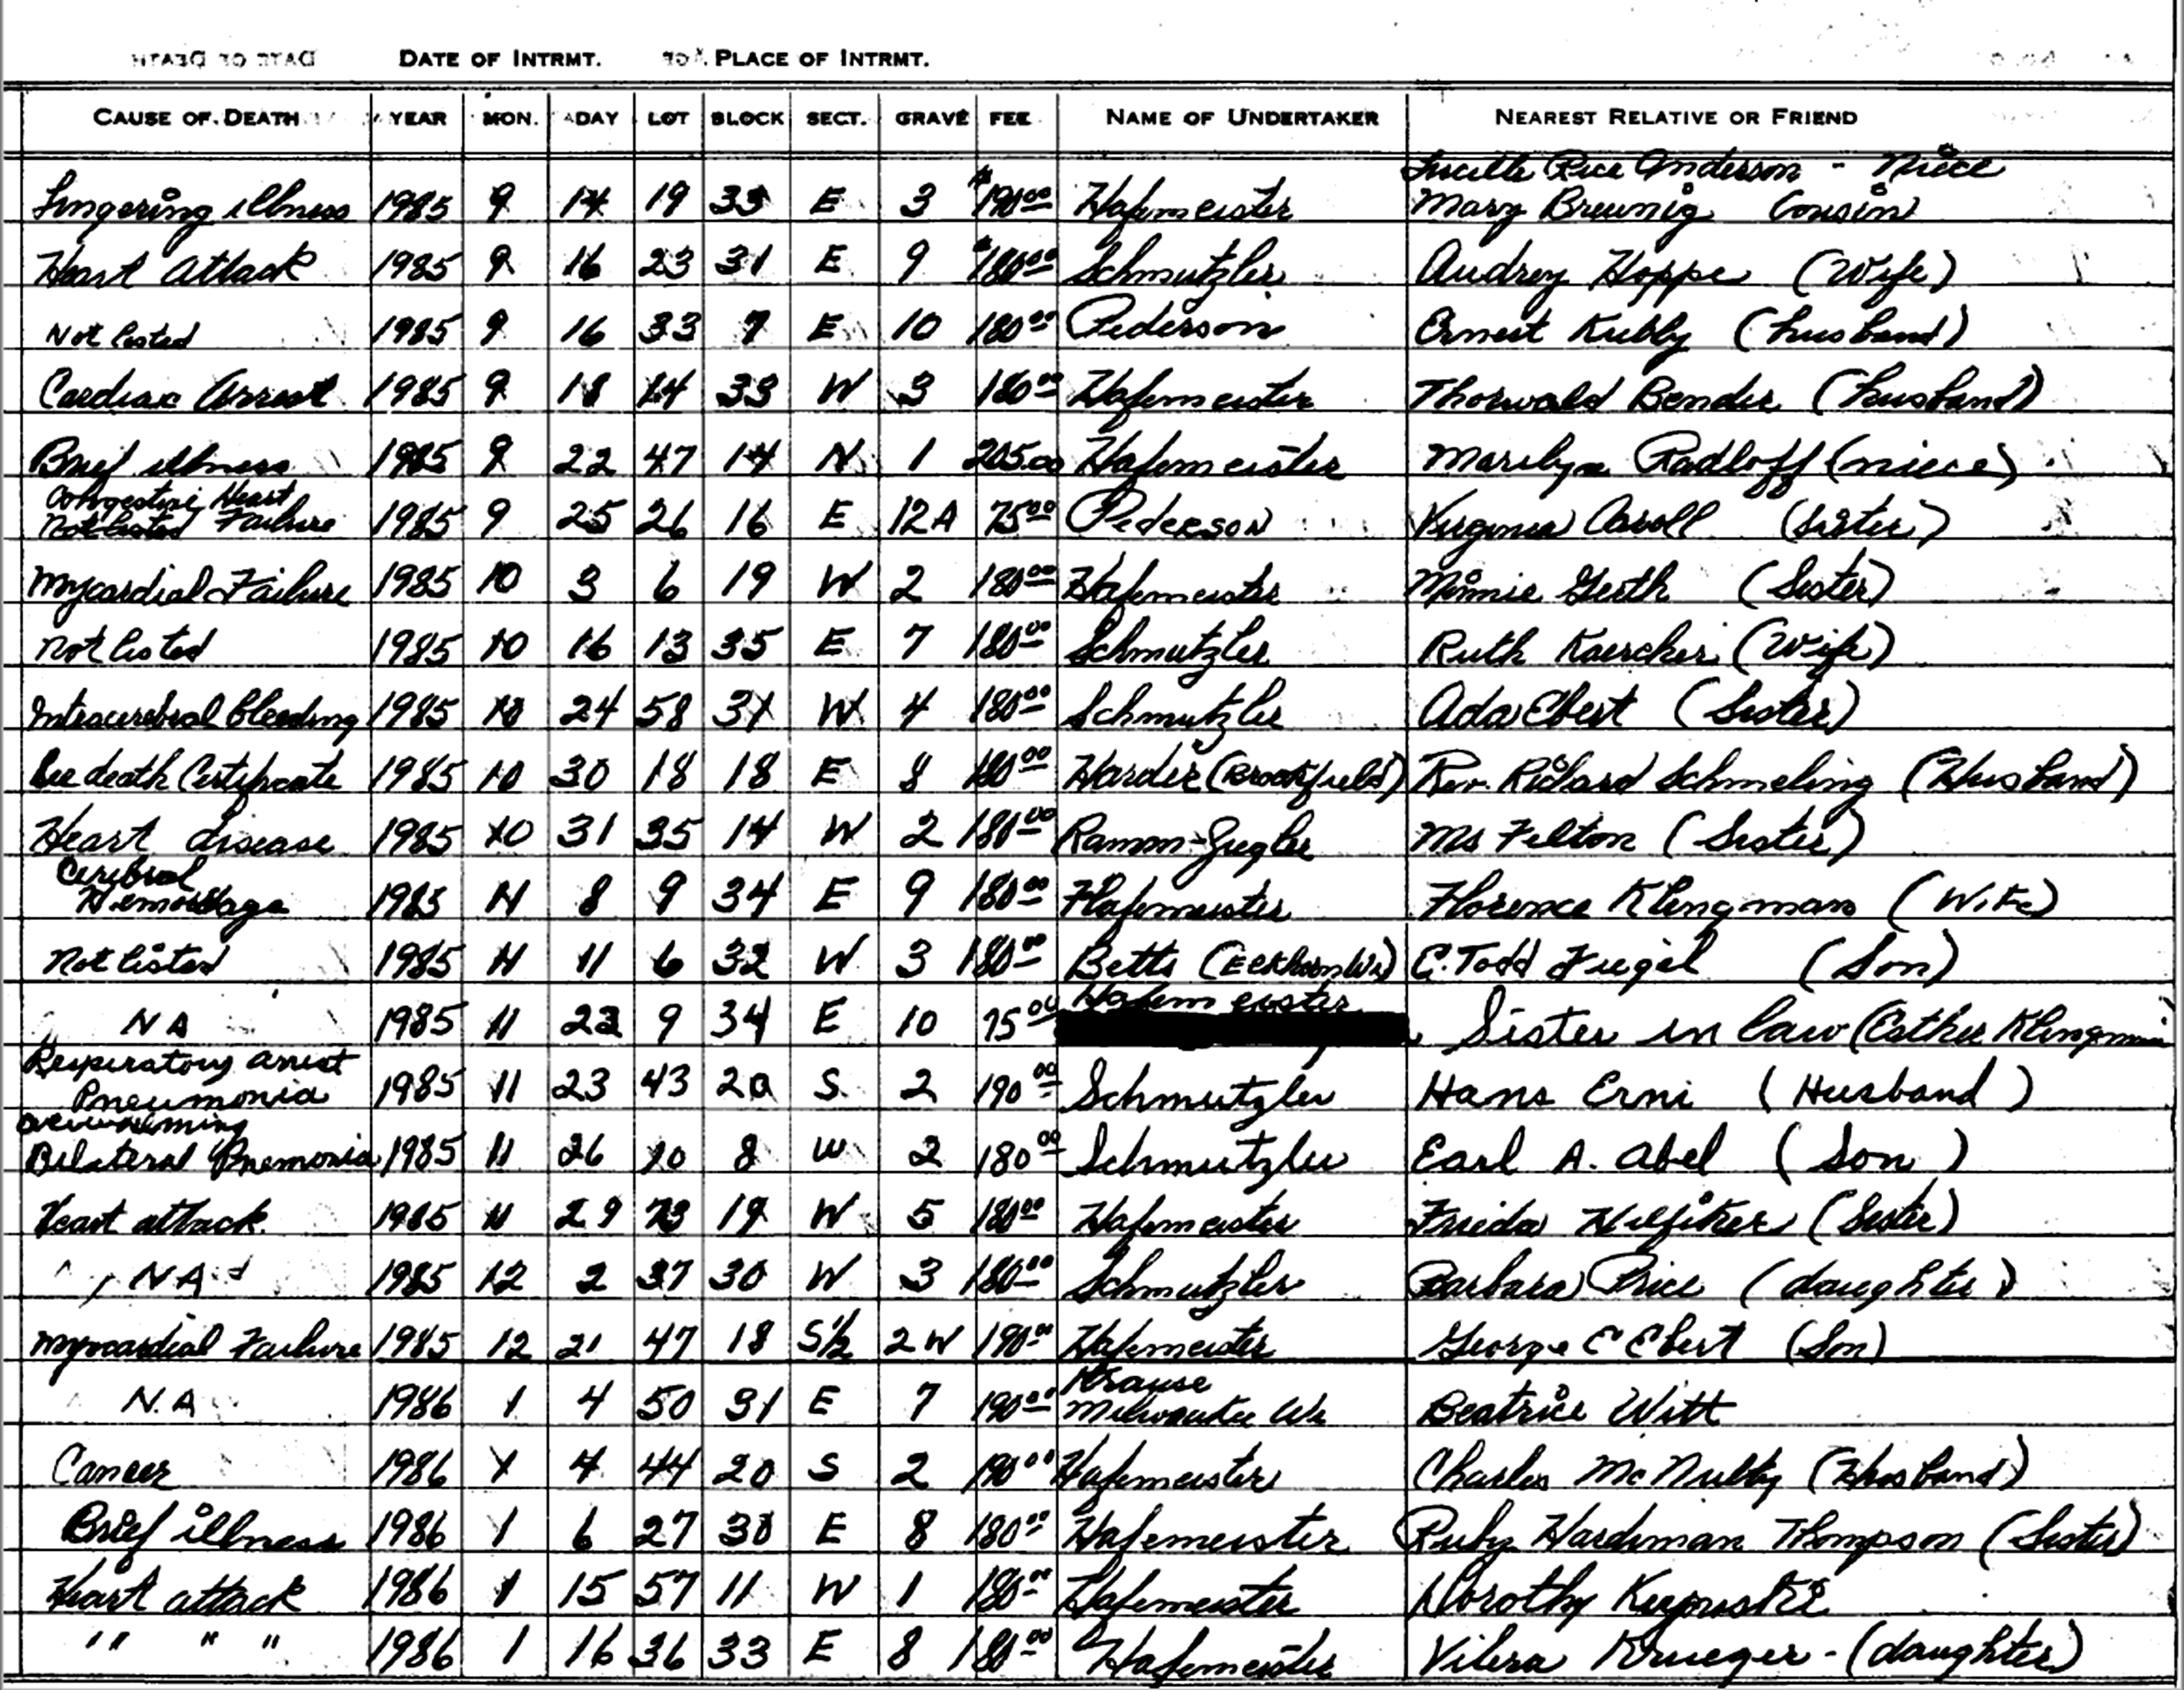 DATE OF DEATH DATE OF INTRMT. PLACE OF INTRMT.
CAUSE OF DEATH YEAR MON. DAY LOT BLOCK SECT. GRAVE FEE NAME OF UNDERTAKER NEAREST RELATIVE OR FRIEND
Lucille Rice Anderson - Niece
Lingering illness 1985 9 14 19 33 E 3 $190.00 Hafemeister Mary Breunig Cousin
Heart Attack 1985 9 16 23 31 E 9 $180.00 Schmutzler Audrey Hoppe (Wife)
Not listed 1985 9 16 33 7 E 10 180.00 Pederson Ernest Kubly (husband)
Cardiac Arrest 1985 9 18 14 33 W 3 180.00 Hafemeister Thorwald Bender (husband)
Brief illness 1985 9 22 47 14 N 1 205.00 Hafemeister Marilyn Radloff (niece)
Congestive Heart
Not listed Failure 1985 9 25 26 16 E 12A 75.00 Pederson Virginia Caroll (Sister)
Mycardial Failure 1985 10 3 6 19 W 2 180.00 Hafemeister Minnie Gerth (Sister)
Not listed 1985 10 16 13 35 E 7 180.00 Schmutzler Ruth Kaercher (Wife)
Intracerebral bleeding 1985 10 24 58 31 W 4 180.00 Schmutzler Ada Ebert (Sister)
See death Certificate 1985 10 30 18 18 E 8 180.00 Harder (Brookfield) Rev. Richard Schmeling (Husband)
Heart disease 1985 10 31 35 14 W 2 180.00 Ms Felton (Sister)
Cerebral
Hemorrhage 1985 11 8 9 34 E 9 180.00 Hafemeister Florence Klingman (Wife)
Not listed 1985 11 11 6 32 W 3 180.00 Betts (Elkhorn Wi) C. Todd Fiegel (Son)
Hafemeister
NA 1985 11 23 9 34 E 10 75.00 Sister in law (Esther Klingman
Respiratory arrest
Pneumonia 1985 11 23 43 20 S 2 190.00 Schmutzler Hans Erni (Husband)
Overwhelming
Bilateral Pnemonia 1985 11 26 10 8 W 2 180.00 Schmutzler Earl A. Abel (Son)
Heart attack 1985 11 29 73 19 W 5 180.00 Hafemeister Frieda Hilfiker (Sister)
NA 1985 12 2 37 30 W 3 180.00 Schmutzler Barbara Price (daughter)
Myocardial Failure 1985 12 21 47 18 S½ 2W 190.00 Hafemeister George C Ebert (Son)
Krause
N.A 1986 1 4 50 31 E 7 190.00 Milwaukee Wi Beatrice Witt
Cancer 1986 1 4 44 20 S 2 190.00 Hafemeister Charles McNulty (Husband)
Brief illness 1986 1 6 27 30 E 8 180.00 Hafemeister Ruby Hardiman Thompson (Sister)
Heart attack 1986 1 15 57 11 W 1 180.00 Hafemeister Dorothy
" " " " 1986 1 16 36 33 E 8 180.00 Hafemeister Krueger - (daughter)